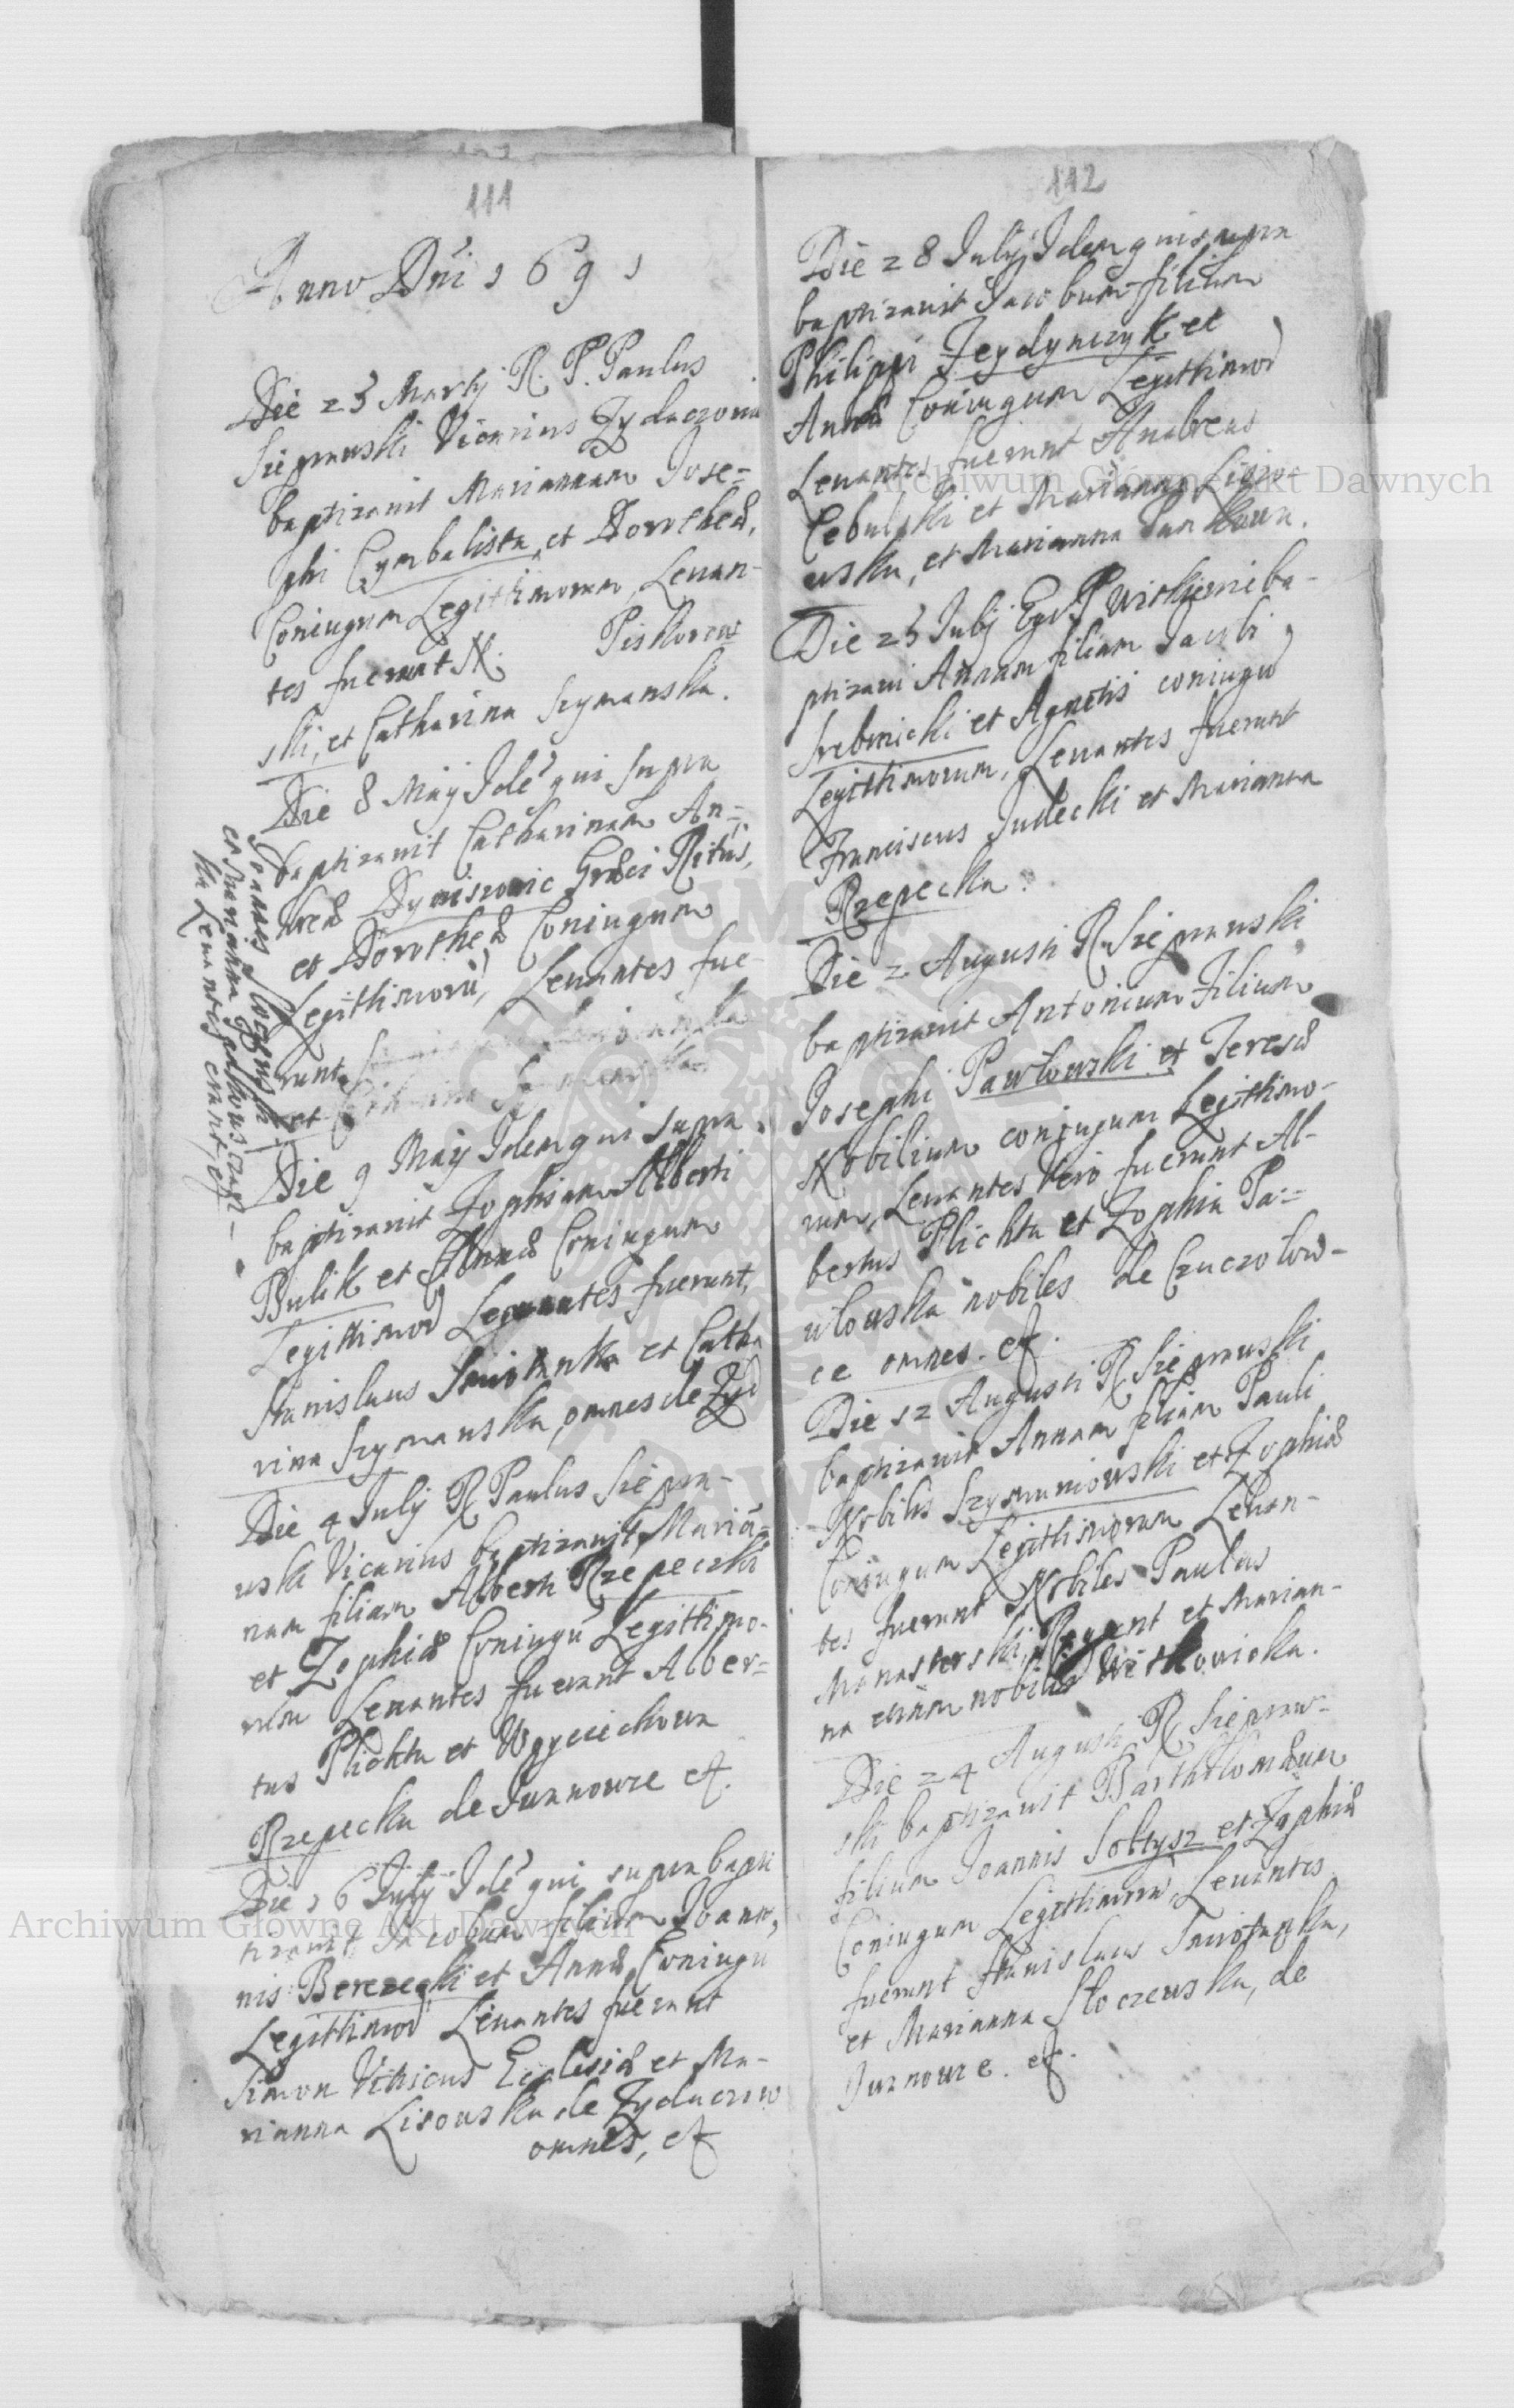 111
Anno Dni 1691
Die 23 Martij R. P. Paulus
Siepraws​ki Vicarius Zydaczoui
baptizauit Mariannam Jose=
phi Cymbalista, et Dorotheæ,
Coniugum Legithimorum, Leuan-
tes fuerunt N. Piskorzew
ski, et Catharina Szymanska.
Die 8 Maij Idē qui supra
baptizauit Catharinam An=
dreæ Dyniszowic Græci Ritus,
et Dorotheæ Coniugum
Legithimorū, Leuantes fue-
runt
et
Joannes Sloczewski
et Marianna Pałkowiczow
ka Leuantes erant, etc
Die 9 Maij Idem qui supra
baptizauit Zophiam Alberti
Bulik et Annæ Coniugum
Legithimor Leuantes fuerunt,
Stanislaus Smiotanka et Catha
rina Szymanska, omnes de Zyd
Die 4 July R Paulus Siepra-
uski Vicarius baptizauit Mariā=
nam filiam Alberti Rzepeczki
et Zophiæ Coniugū Legithimo-
rum Leuantes fuerunt Alber=
tus Plichta et Woyciechowa
Rzepecka de Iwanowce et.
Die 16 July Idē qui supra bapti
tizauit Jacobum filium Joan̄,
nis Berezecki et Annæ Coniugū
Legithimor Leuantes fuerunt
Simon Vitricus Ecclesiæ et Ma-
rianna Lisouska de Zydaczow
omnes, et
112
Die 28 July Idem qui supra
baptizauit Jacobum filium
Philippi Feydynczyk et
Annæ Coniugum Legithimor
Leuantes fuerunt Andreas
Cebulski et Marianna
uska, et Marianna Jankowa.
Die 25 July Ego P Witkieni ba-
ptizaui Annam filiam Jacobi
Srebnicki et Agnetis coniugū
Legithimorum, Leuantes fuerunt
Franciscus Judecki et Marianna
Rzepecka.
Die 2 Augusti R Siepranski
baptizauit Antonium Filium
Josephi Pawłouski et Teresæ
Nobilium coniugum Legithimo-
rum, Leuantes Vero fuerunt Al-
bertus Plichta et Zophia Pa=
włouska nobiles de Czuczołow-
ce omnes. et.
Die 12 Augusti R Siepraus​ki
baptizauit Annam filiam Pauli
Nobilis Szymaniouski et Zophiæ
Coniugum Legithimorum Leuan-
tes fuerunt Nobiles Paulus
Manasterski, Regent et Marian-
na etiam nobilis Witkowicka.
Die 24 Augusti R Siepraw-
ski baptizauit Bartholomæum
filium Joannis Sołtysz et Zophiæ
Coniugum Legithimor, Leuantes
fuerunt Stanislaus Smiotanka,
et Marianna Sloczewska, de
Iwanowce. et.
Archiwum Główne Akt Dawnych
Archiwum Główne Akt Dawnych